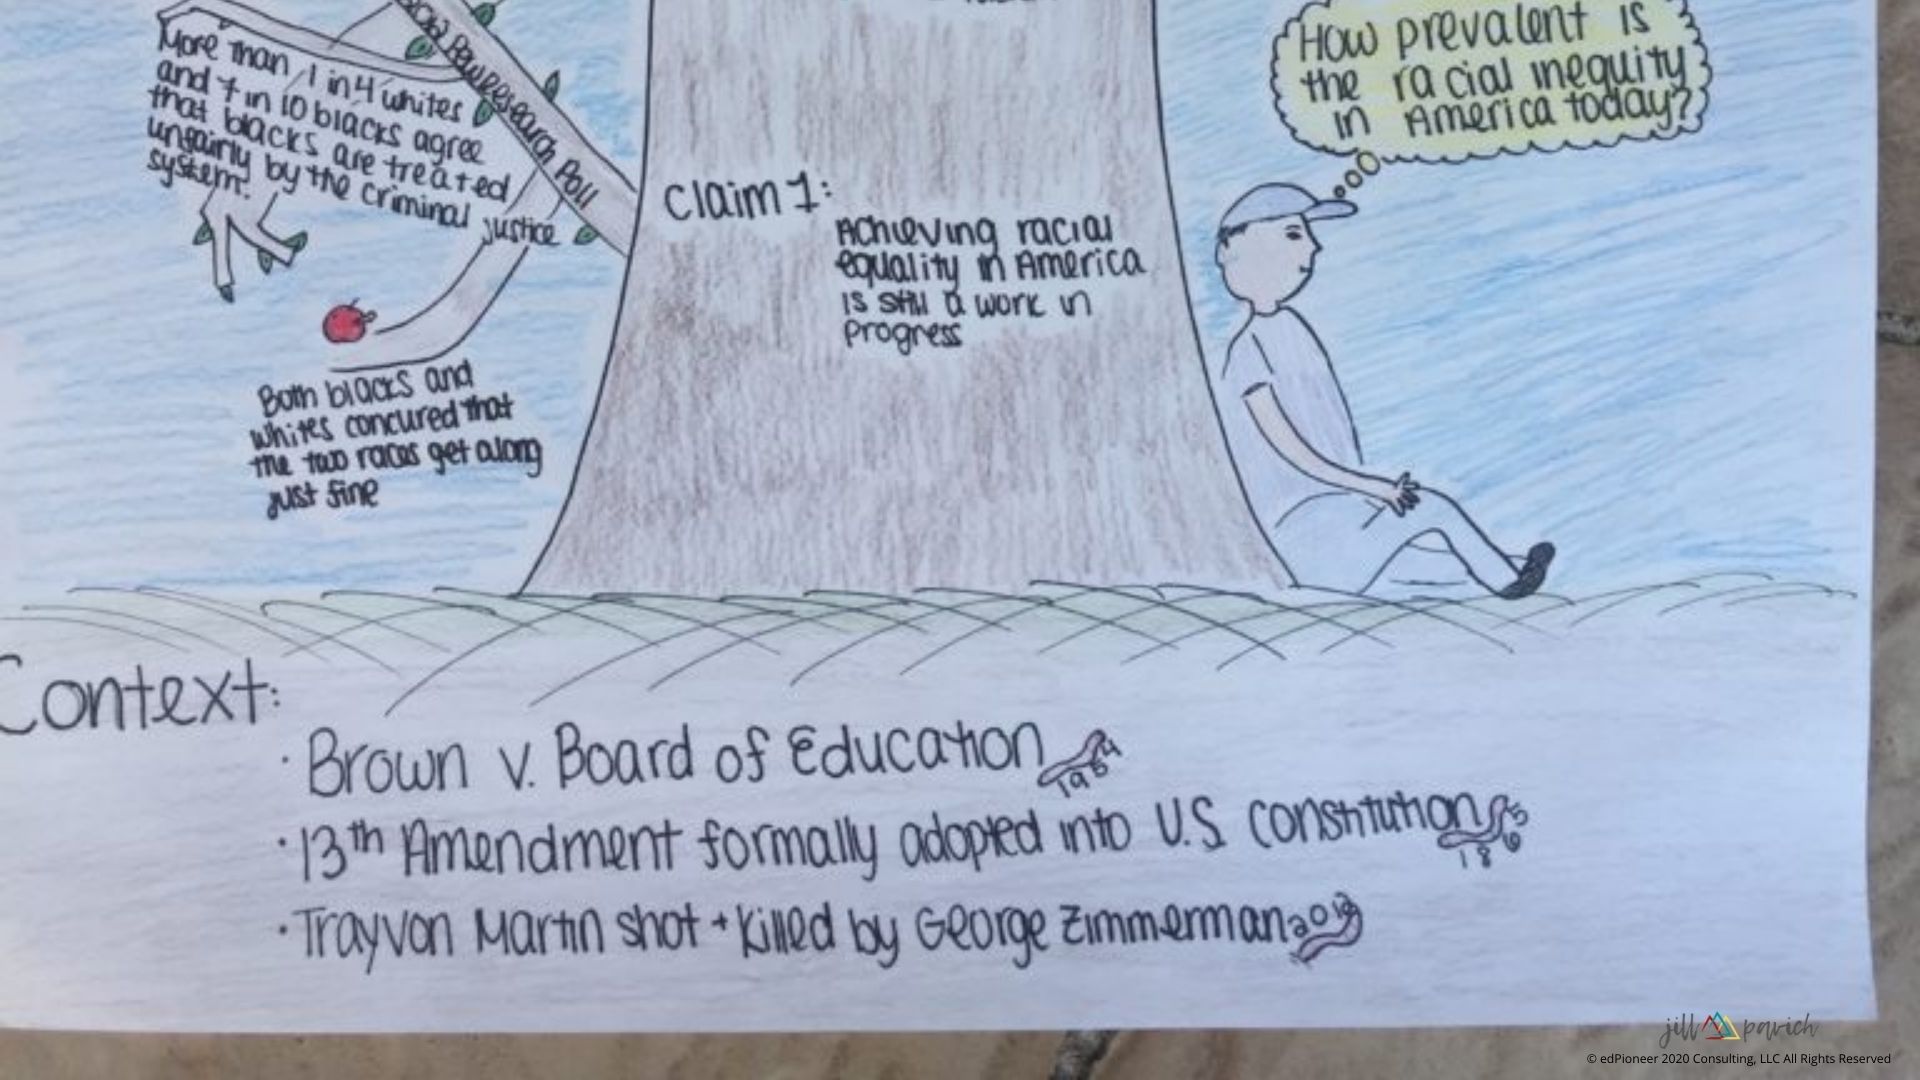 More than 1 in 4 whites
and 7 in 10 blacks agree
that blacks are treated
unfairly by the criminal justice
system.
Poll
Both blacks and
whites concured that
the two races get along
just fine
Claim 1:
Achieving racial
equality in America
is still a work in
progress
How prevalent is
the racial inequity
in America today?
Context:
· Brown v. Board of Education 1954
· 13th Amendment formally adopted into U.S. Constitution 1865
· Trayvon Martin shot + killed by George Zimmerman
jill pavich
© edPioneer 2020 Consulting, LLC All Rights Reserved